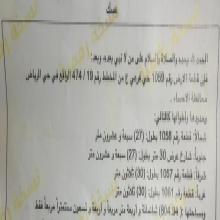 صك
الحمد لله وحده والصلاة والسلام على من لا نبي بعده، وبعد:
فإن قطعة الأرض رقم 1059 حي فرعي ع من المخطط رقم 19 / 474 الواقع في حي الرياض
محافظة الاحساء .
وحدودها وأطوالها كالتالي:
شمالاً: قطعة رقم 1058 بطول: (27) سبعة و عشرون متر
جنوباً: شارع عرض 30 متر بطول: (27) سبعة و عشرون متر
شرقاً: قطعة رقم 1057 بطول: (30) ثلاثون متر
غرباً: قطعة رقم 1061 بطول: (30) ثلاثون متر
ومساحتها: (804) ثمانمائة و أربعة متر مربعاً و أربعة و تسعون سنتمتراً مربعاً فقط